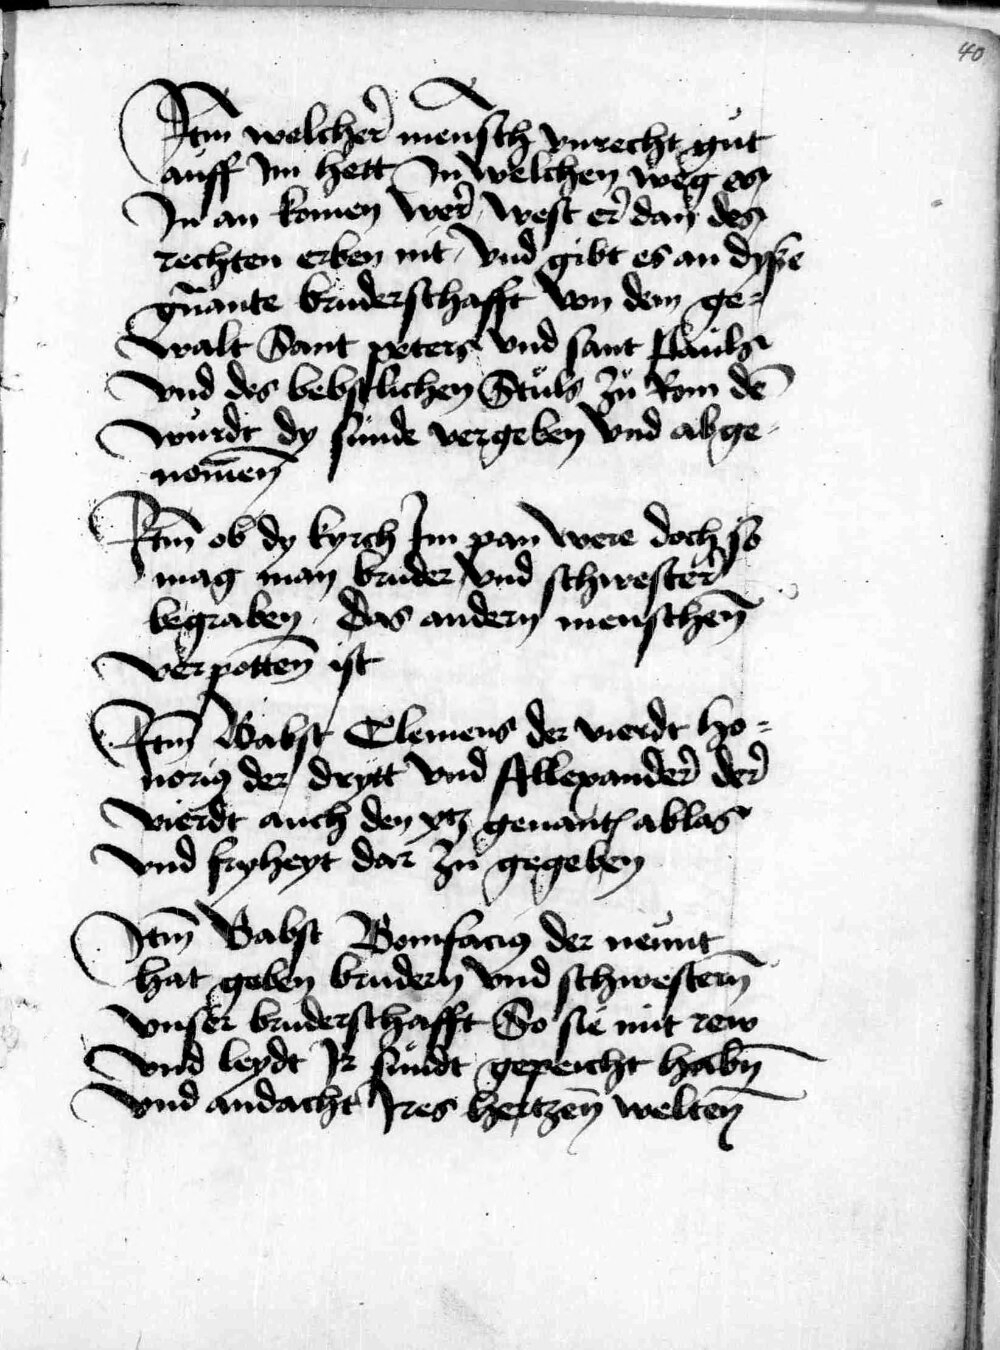 40
Itm̄ welcher mensch vnrecht gůt
auff Im hett In welchen weg es
In an komen wer west er dan des
rechten erben nit vnd gibt es an dyße
gnāante bruderschafft von dem ge=
walt Sant peters vnd sant Paůls
vnd des bebstlichen Stůls zů Rom dē
wůrdt dy sünde vergeben vnd abge=
nomēn
Itm̄ ob dy kyrch Im pan were doch so
mag man bruder vnd schwester
begraben das andern menschen̄
verpotten̄ ist
Itm̄ Babst Clemens der vierdt ho=
norig der drytt vnd Allexander der
vierdt auch den ytz genant ablas
vnd fryheyt dar zů gegeben
Itm̄ Babst Bonifacig der neůnt
hat geben brudern vnd schwestern̄
vnser bruderschafft So sie mit rew
vnd leydt Ir sůndt gepeicht habn̄
vnd andacht Ires hertzen̄ welten̄